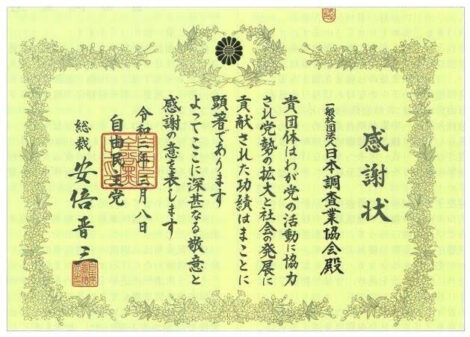 感謝状
一般社団法人日本調査業協会殿
貴団体はわが党の活動に協力
され党勢の拡大と社会の発展に
貢献された功績はまことに
顕著であります
よってここに深甚なる敬意と
感謝の意を表します
令和二年三月八日
自由民主党
総裁 安倍晋三